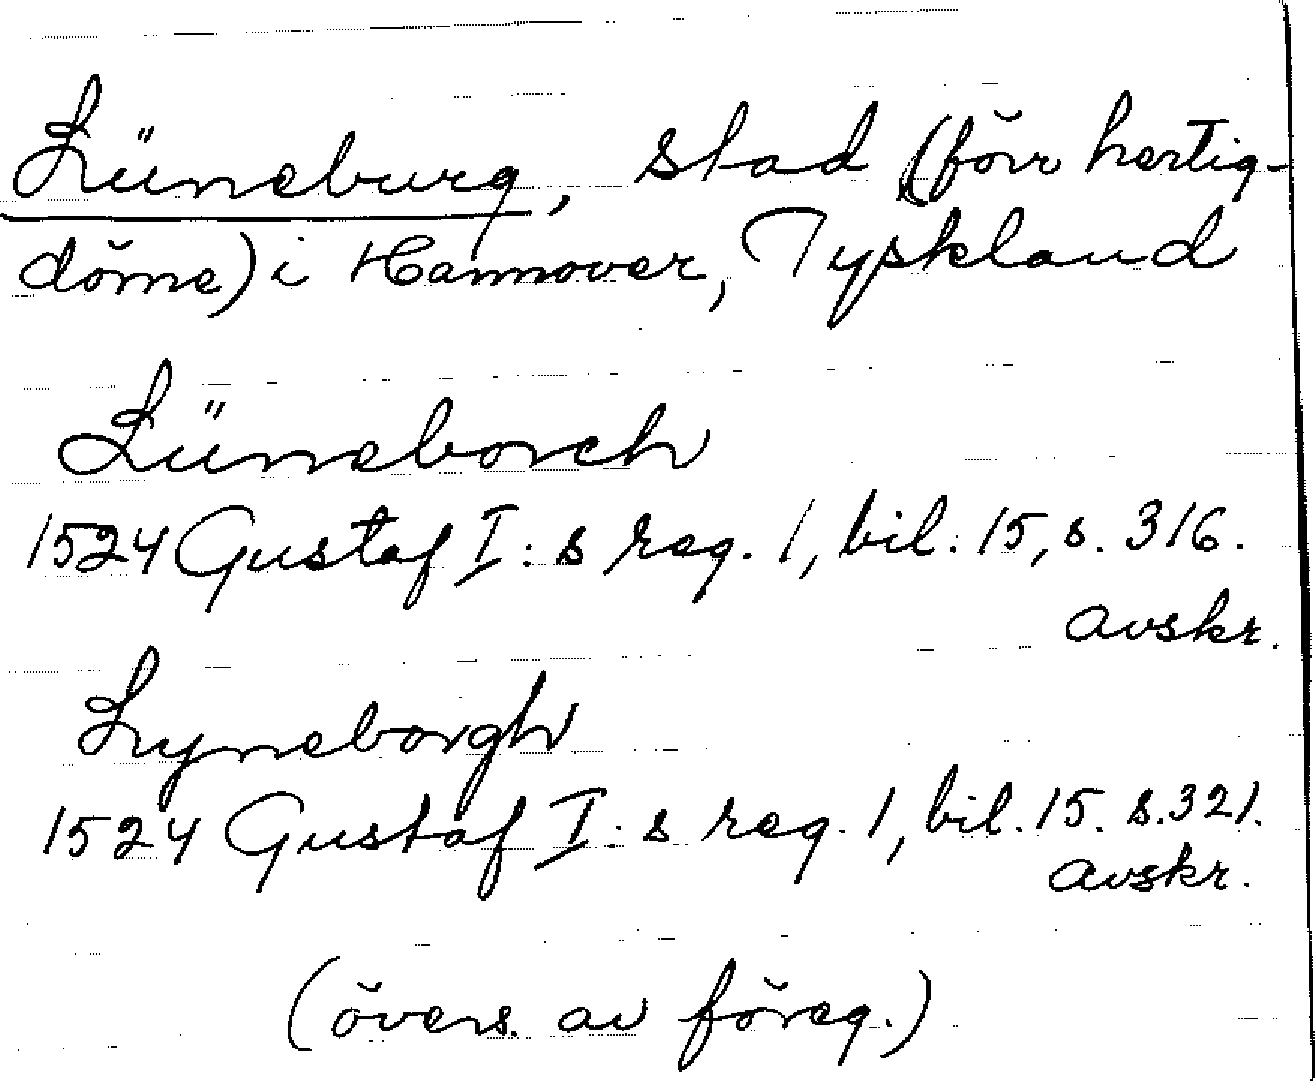 Lüneburg, stad (förr hertig-
döme) i Hannover, Tyskland
Lüneborch
1524 Gustaf I:s reg. 1, bil. 15, s. 316.
avskr.
Lyneborgh
1524 Gustaf I:s reg. 1, bil. 15. s. 321.
avskr.
(övers. av föreg.)